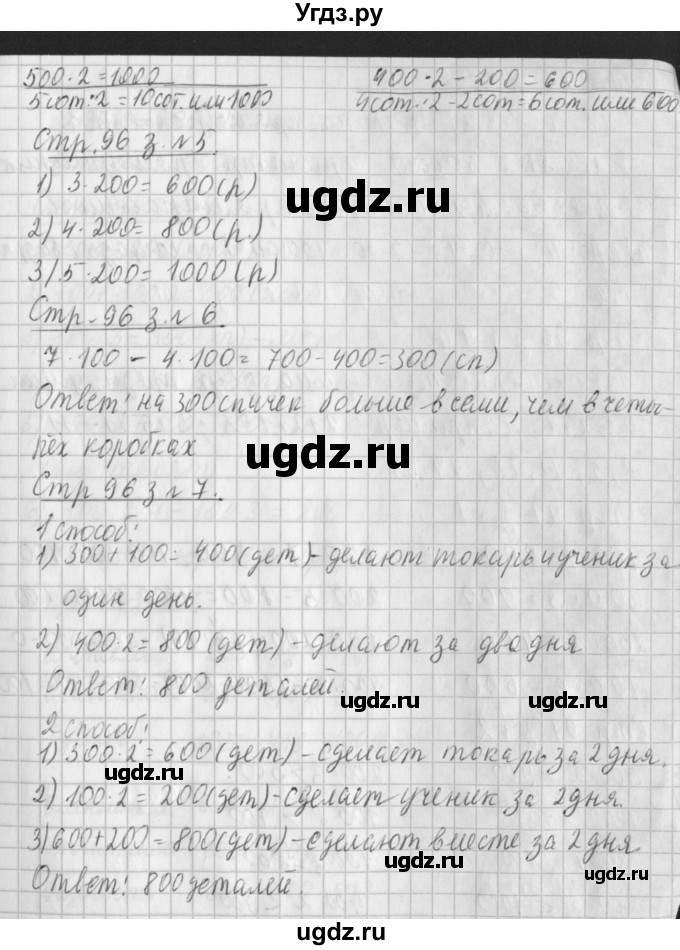 Угдз.ру
500·2=1000
400·2-200=600
5сот·2=10сот. или 1000
4сот·2-2сот=6сот. или 600
Стр. 96 з. №5.
1) 3·200= 600(р)
ugdz.ru
2) 4·200= 800(р.)
3) 5·200= 1000(р)
Стр. 96 з. № 6.
7·100 - 4·100= 700-400=300(сп)
Ответ: на 300 спичек больше в семи, чем в четы-
рёх коробках
ugdz.ru
Стр 96 з № 7.
1 способ:
1) 300+100= 400(дет)-делают токарь и ученик за
один день.
ugdz.ru
2) 400·2=800(дет)-делают за два дня
Ответ: 800 деталей.
ugdz.ru
2 способ:
1) 300·2=600(дет)-сделает токарь за 2 дня.
ugdz.ru
2) 100·2= 200(дет)-сделает ученик за 2дня.
3) 600+200=800(дет)-сделают вместе за 2 дня
ugdz.ru
Ответ: 800 деталей.
ugdz.ru